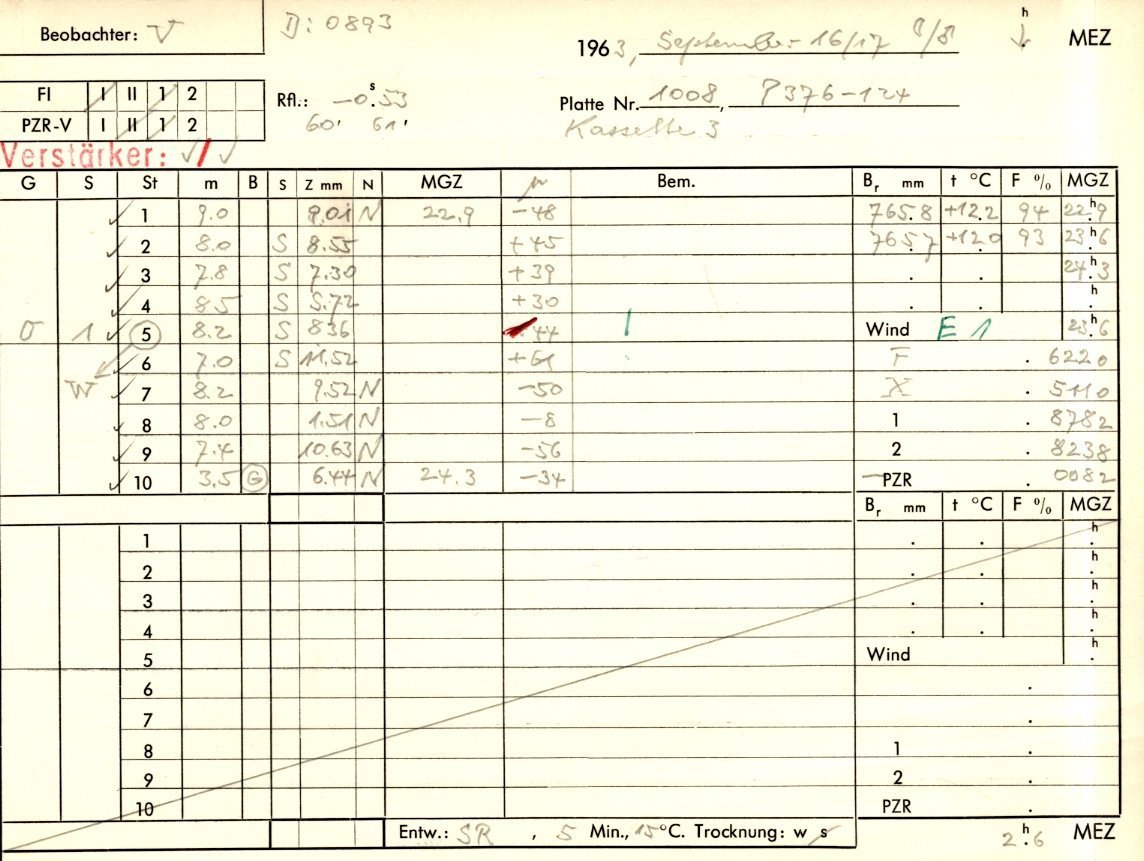 Beobachter: V
D: 0893
1963, September 16/17
h
MEZ
FI I II 1 2
PZR-V I II 1 2
Rfl.: -0.ˢ53
60' 61'
Platte Nr. 1008, P376-124
Kassette 3
Verstärker: √/√
G S St m B S Z mm N MGZ μ Bem. Bᵣ mm t °C F % MGZ
1 9.0 9.01 N 22.9 -48 765.8 +12.2 94 22ʰ.9
2 8.0 S 8.55 +45 765.7 +12.0 93 23ʰ.6
3 7.8 S 7.30 +39 . . 24ʰ.3
4 8.5 S 5.72 +30 . . h
0 1 5 8.2 S 8.36 44 Wind E 1 23ʰ.6
6 7.0 S 11.52 +61 F . 6220
W 7 8.2 9.52 N -50 X . 5110
8 8.0 1.51 N -8 1 . 8782
9 7.4 10.63 N -56 2 . 8238
10 3.5 G 6.44 N 24.3 -34 -PZR . 0082
Bᵣ mm t °C F % MGZ
1 . . h
2 . . h
3 . . h
4 . . h
5 Wind h
6 .
7 .
8 1 .
9 2 .
10 PZR .
Entw.: SR, 5 Min., 15°C. Trocknung: w s
2ʰ.6 MEZ